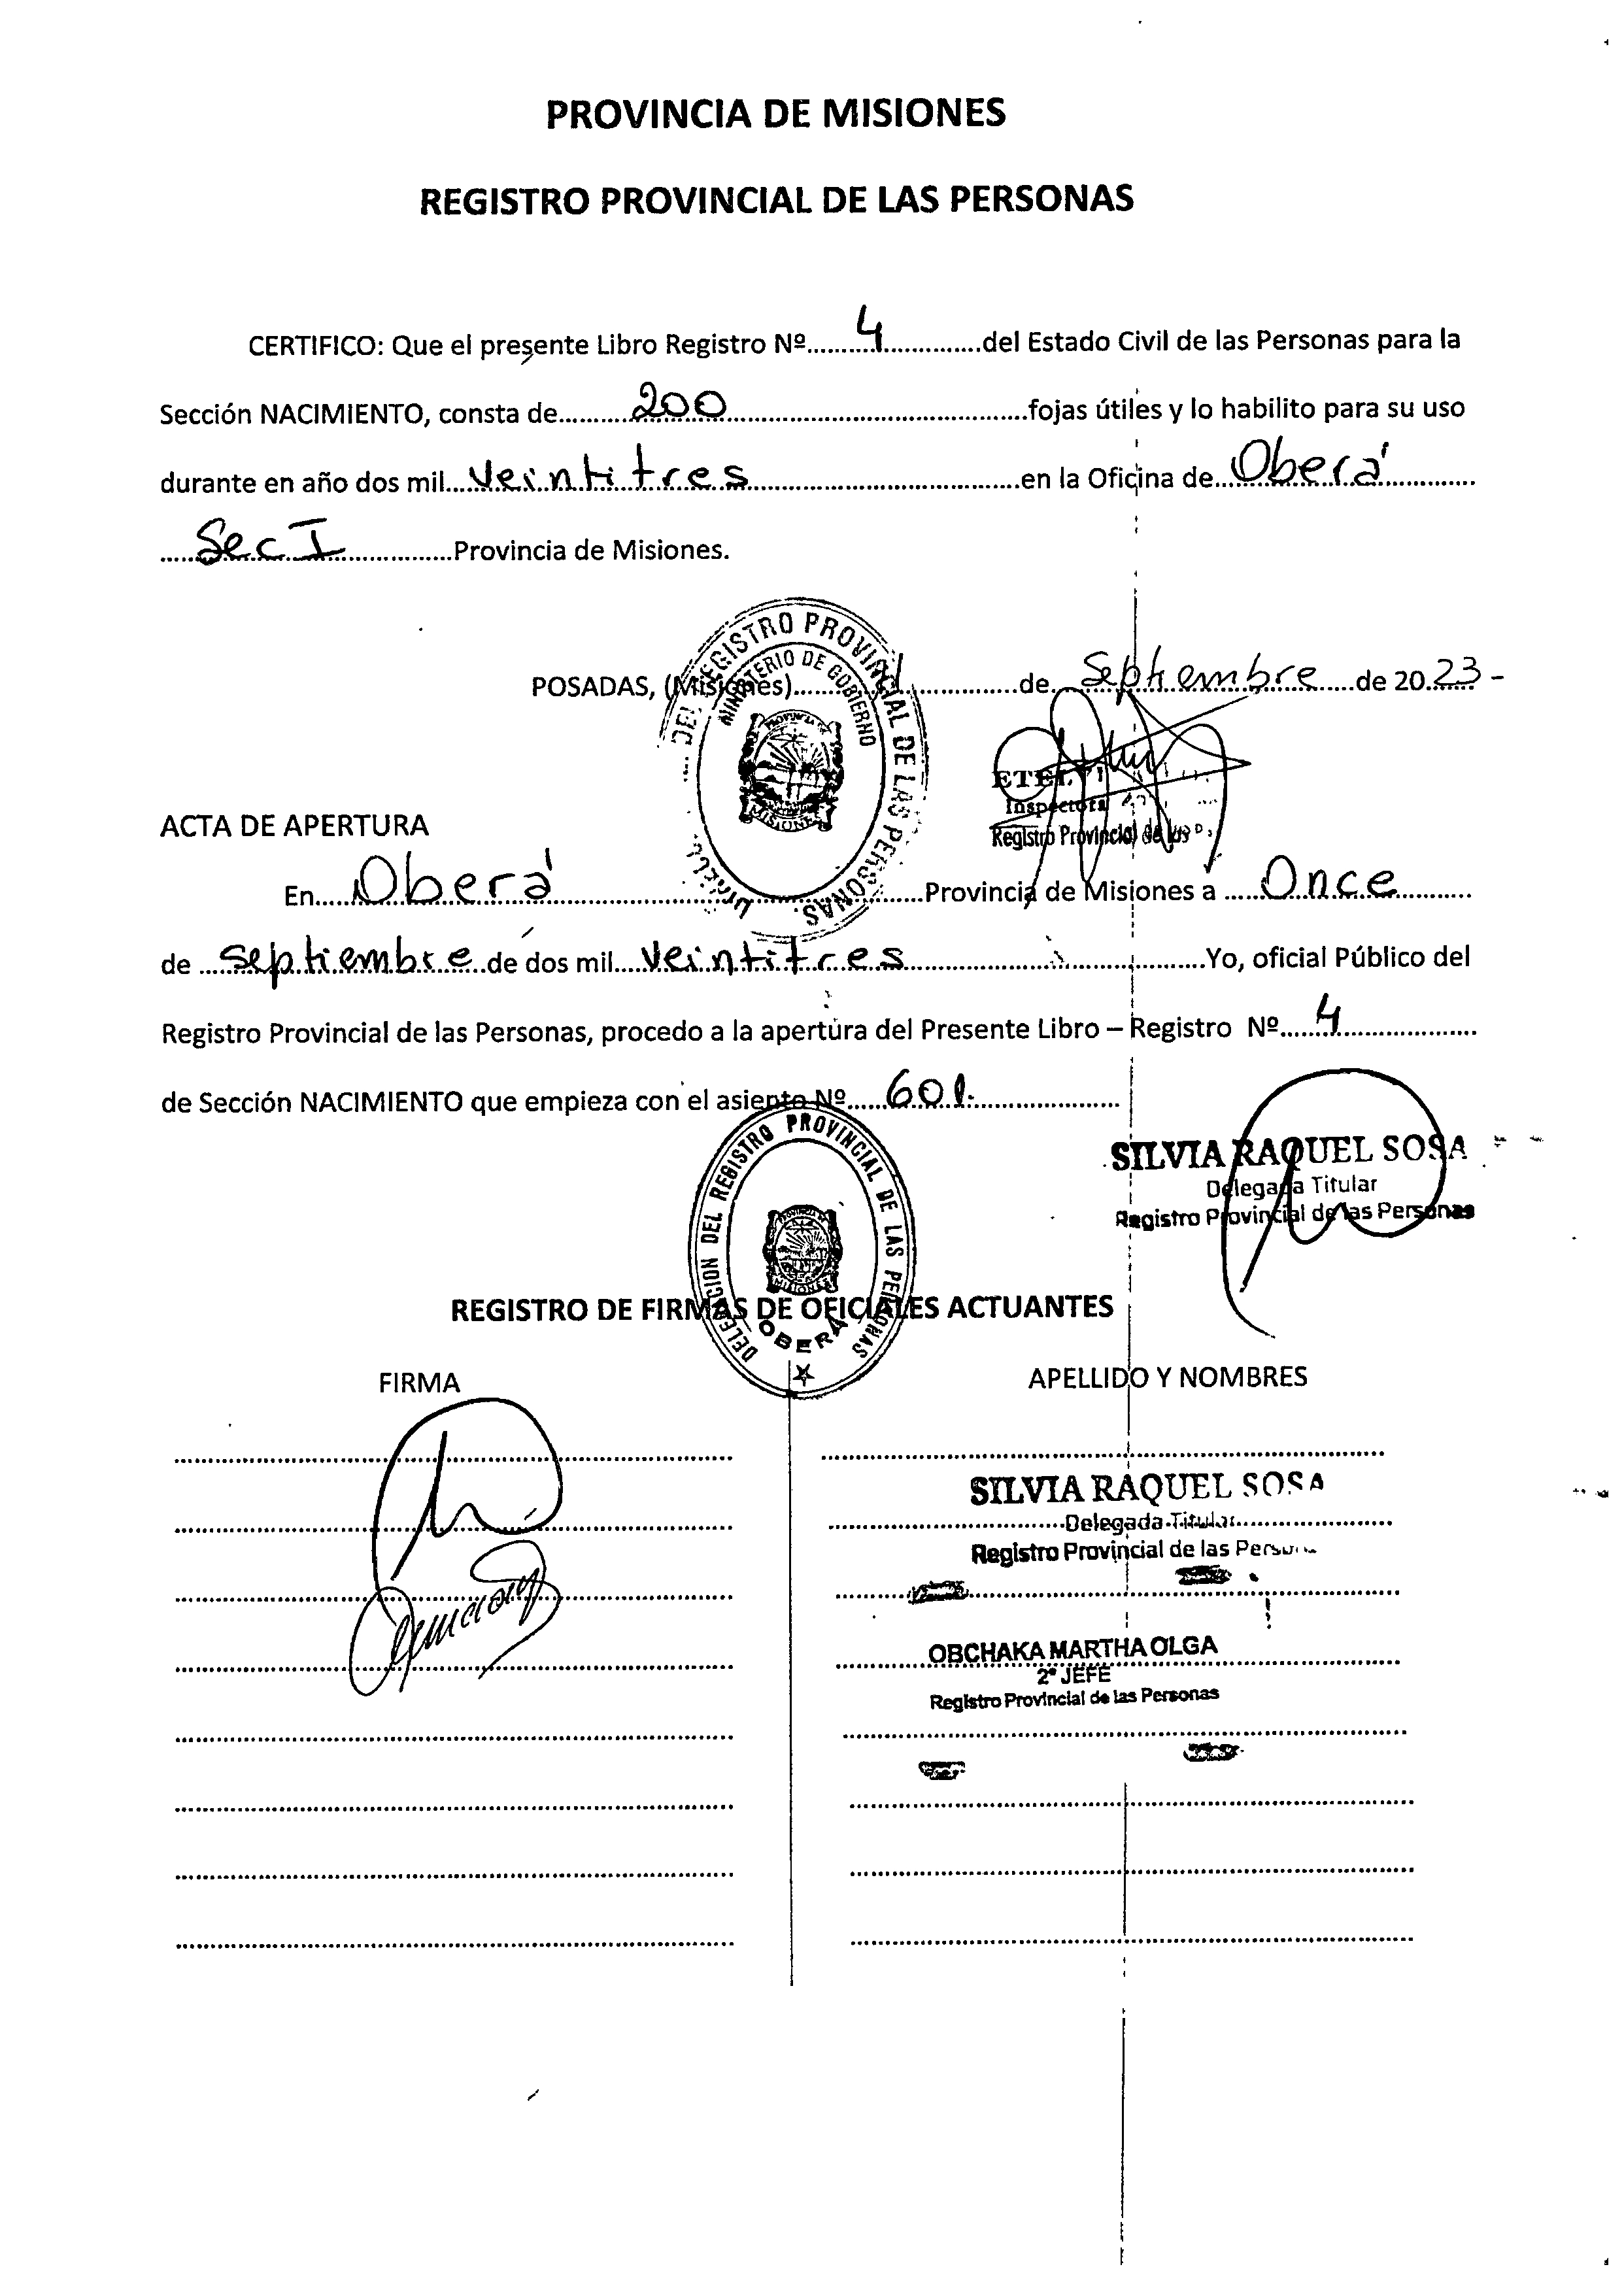 PROVINCIA DE MISIONES
REGISTRO PROVINCIAL DE LAS PERSONAS
CERTIFICO: Que el presente Libro Registro Nº 4 del Estado Civil de las Personas para la
Sección NACIMIENTO, consta de 200 fojas útiles y lo habilito para su uso
durante en año dos mil Veintitres en la Oficina de Oberá
Sec I Provincia de Misiones.
DEL REGISTRO PROVINCIAL DE LAS PERSONAS
MINISTERIO DE GOBIERNO
PROVINCIA DE
MISIONES
POSADAS, (Misiones) de Septiembre de 2023 -
Inspectora
Registro Provincial de las
ACTA DE APERTURA
En Oberá Provincia de Misiones a Once
de septiembre de dos mil Veintitres Yo, oficial Público del
Registro Provincial de las Personas, procedo a la apertura del Presente Libro – Registro Nº 4
de Sección NACIMIENTO que empieza con el asiento Nº 601.
SILVIA RAQUEL SOSA
Delegada Titular
Registro Provincial de las Personas
DELEGACION DEL REGISTRO PROVINCIAL DE LAS PERSONAS
PROVINCIA DE
MISIONES
OBERA
REGISTRO DE FIRMAS DE OFICIALES ACTUANTES
FIRMA APELLIDO Y NOMBRES
SILVIA RAQUEL SOSA
Delegada Titular
Registro Provincial de las
OBCHAKA MARTHA OLGA
2º JEFE
Registro Provincial de las Personas